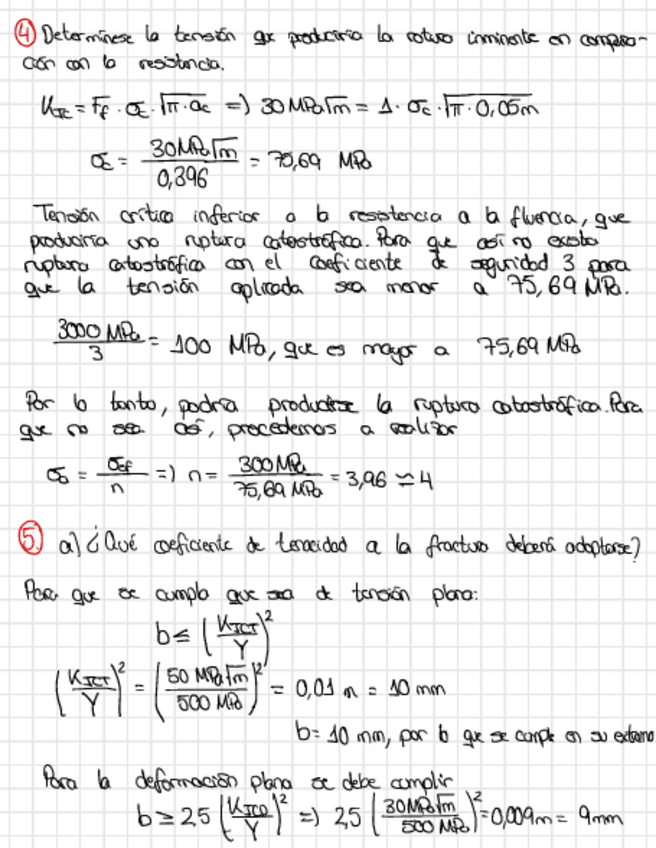 ④ Determínese la tensión que produciría la rotura inminente en compara-
ción con la resistencia.
K_IC = F_f · σ_c · √π·a_c => 30 MPa√m = 1 · σ_c · √π·0,05m
σ_c = 30MPa√m / 0,396 = 75,69 MPa
Tensión crítica inferior a la resistencia a la fluencia, que
produciría una ruptura catastrófica. Para que así no exista
ruptura catastrófica con el coeficiente de seguridad 3 para
que la tensión aplicada sea menor a 75,69 MPa.
3000 MPa / 3 = 100 MPa, que es mayor a 75,69 MPa
Por lo tanto, podría producirse la ruptura catastrófica. Para
que no sea así, procedemos a realizar
σ_a = σ_cf / n => n = 300 MPa / 75,69 MPa = 3,96 ≃ 4
⑤ a) ¿Qué coeficiente de tenacidad a la fractura deberá adoptarse?
Para que se cumpla que sea de tensión plana:
b ≤ (K_ICT / Y)²
(K_ICT / Y)² = (50 MPa√m / 500 MPa)² = 0,01 m = 10 mm
b = 10 mm, por lo que se cumple en su extremo
Para la deformación plana se debe cumplir
b ≥ 2,5 (K_ICD / Y)² => 2,5 (30MPa√m / 500 MPa)² = 0,009m = 9mm